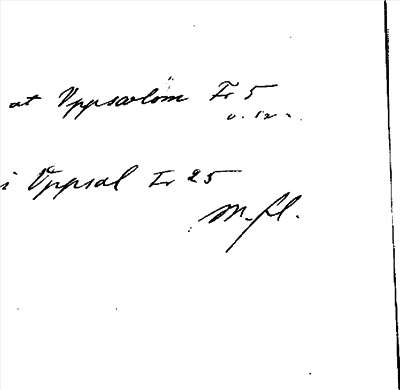 at Uppsalom Fr 5
0.12.
i Uppsal Fr 25
M. fl.